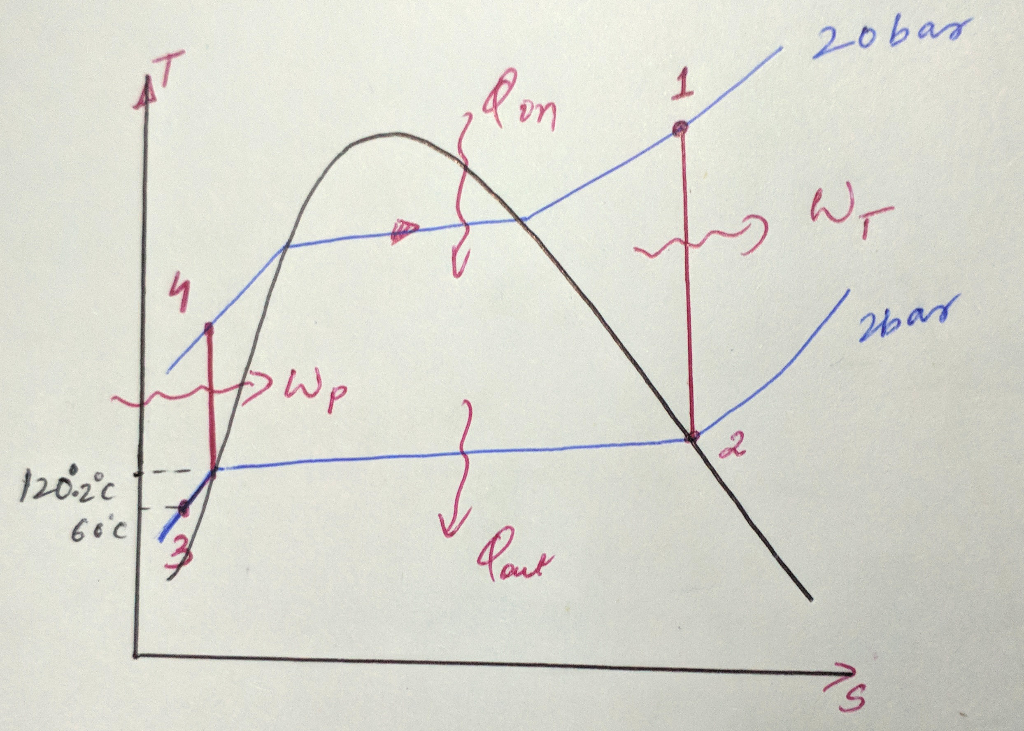 T
20 bar
Qin
1
WT
4
2bar
WP
2
120.2°C
60°C
3
Qout
S